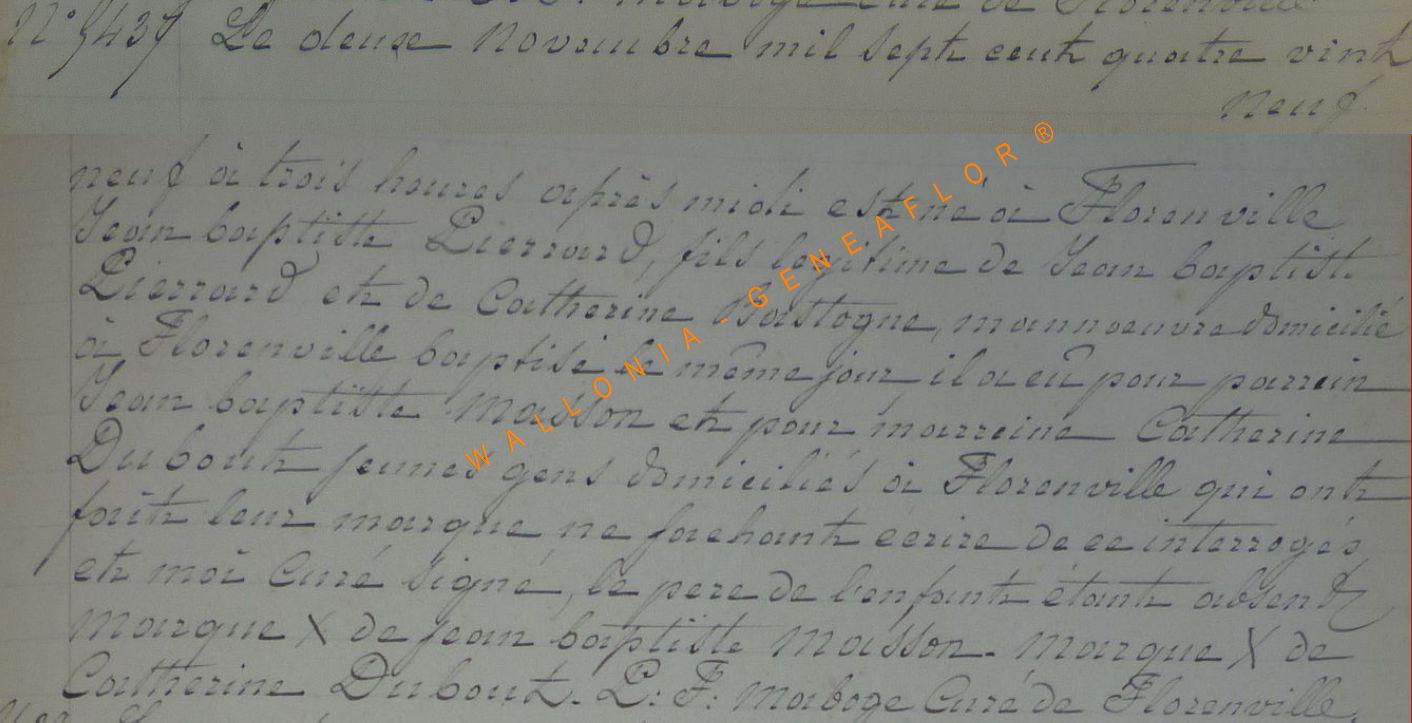 Maboge Curé de Florenville
N° 5437 Le deuxe Novembre mil sept cent quatre vint
neuf
neuf à trois heures après midi est né à Florenville
Jean baptiste Pierrard, fils legitime de Jean baptiste
Pierrard et de Catherine Bastogne, mannoeuvre domicilié
à Florenville baptisé le même jour il a eû pour parrein
Jean baptiste Masson et pour marreine Catherine
Dubout jeunes gens domiciliés à Florenville qui ont
fait leur marque ne sachant écrire de ce interrogés
et moi Curé signé, le pere de l'enfant étant absent
Marque X de Jean baptiste Masson. Marque X de
Catherine Dubout. L: F: Maboge Curé de Florenville
WALLONIA - GENEAFLOR ®